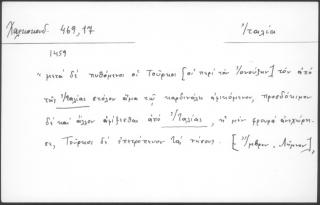 Χαλκοκονδ. 469,17 Ἰταλία
1459
"μετὰ δὲ πυθόμενοι οἱ Τοῦρκοι [οἱ περὶ τὸν Ἰονούζην] τὸν ἀπὸ
τῆς Ἰταλίας στόλον ἅμα τῷ καρδινάλῃ ἀφικόμενον, προσδόκιμον
δὲ καὶ ἄλλον ἀφίξεσθαι ἀπὸ Ἰταλίας, ἡ μὲν φρουρὰ ἀνεχώρη-
σε, Τοῦρκοι δὲ ἐπετρόπευον τὰς νήσους. [Ἴμβρον, Λῆμνον],